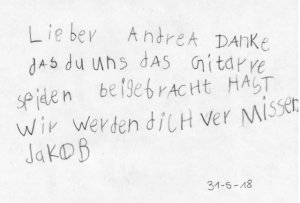 Lieber Andrea Danke
das du uns das Gitarre
speiden beigebracht Hast
Wir werden dich ver missen
Jakob
31-5-18